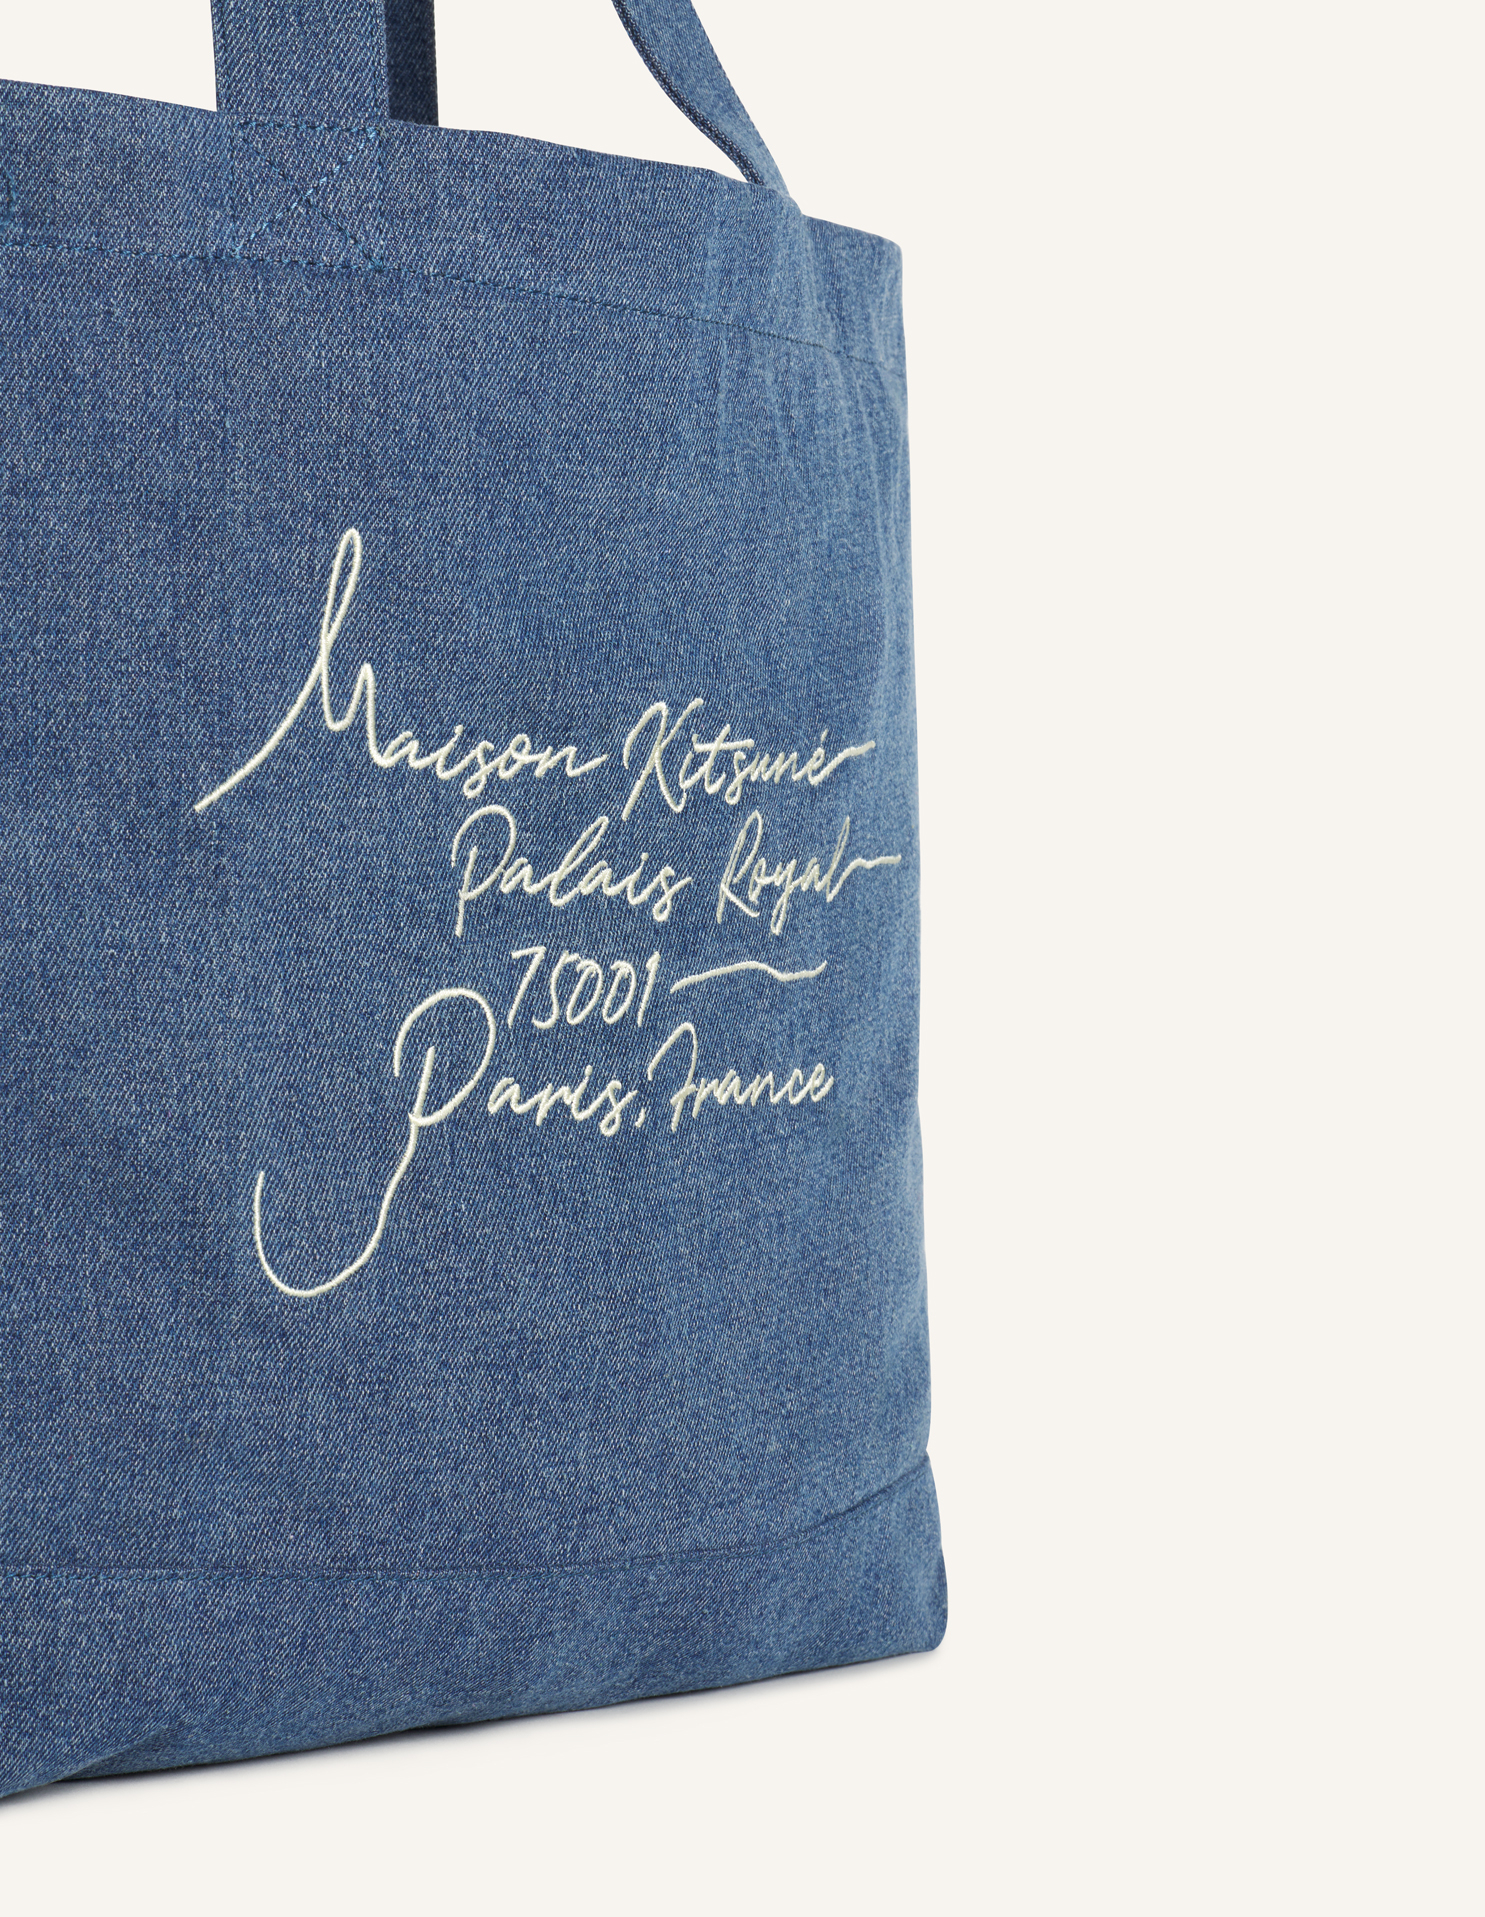 Maison Kitsuné
Palais Royal
75001
Paris, France